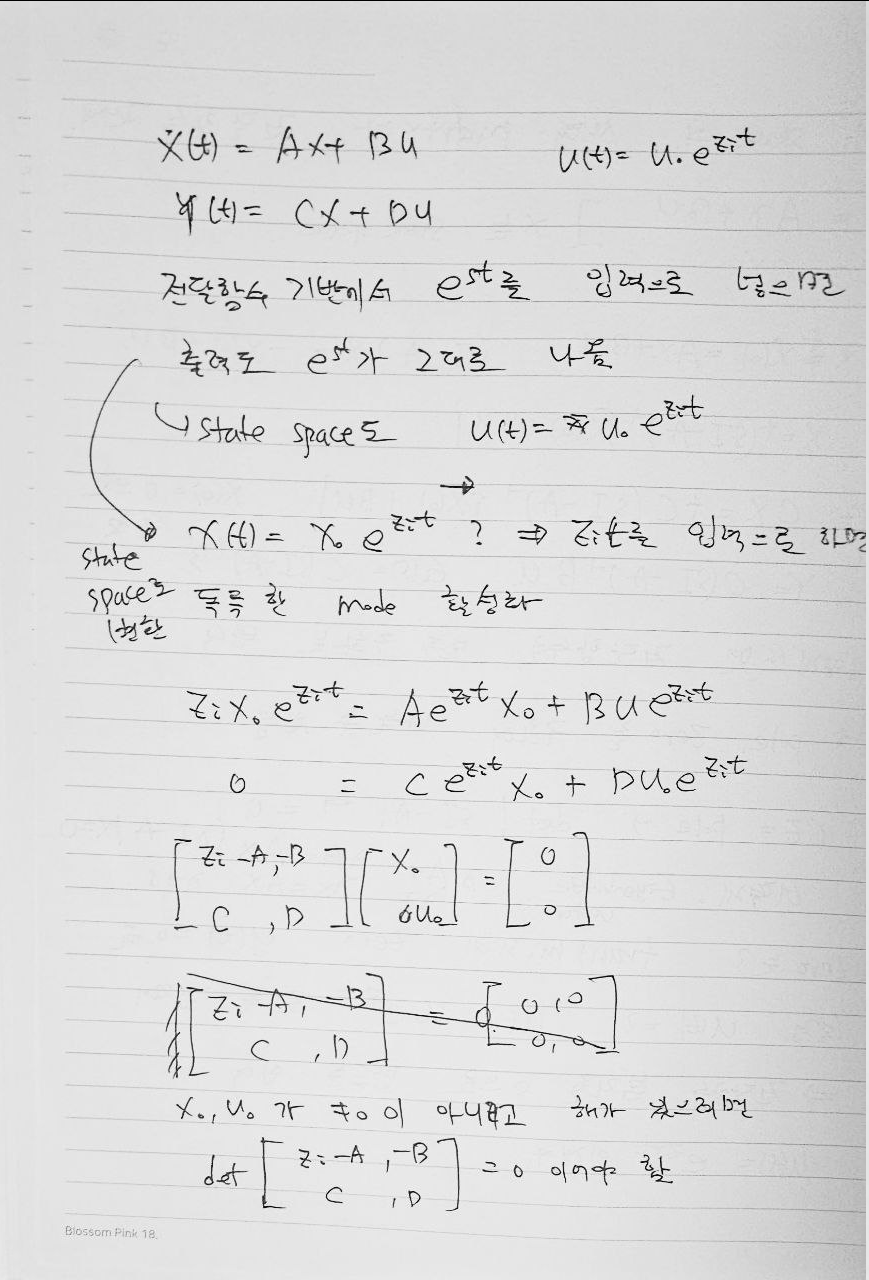 ẋ(t) = Ax + Bu u(t) = u₀ e^{z_i t}
y(t) = Cx + Du
전달함수 기반에서 e^{st}를 입력으로 넣으면
출력도 e^{st}가 그대로 나옴
↳ state space도 u(t) = u₀ e^{z_i t}
→
x(t) = x₀ e^{z_i t} ? ⇒ z_i t를 입력으로 하면
state
space로 독특한 mode 활성화
변환
z_i x₀ e^{z_i t} = A e^{z_i t} x₀ + B u e^{z_i t}
0 = C e^{z_i t} x₀ + D u₀ e^{z_i t}
[ z_i - A, -B ] [ x₀ ] = [ 0 ]
[ C , D ] [ u₀ ] [ 0 ]
[ z_i - A, -B ] = [ 0, 0 ]
[ C , D ] [ 0, 0 ]
x₀, u₀ 가 ≠0 이 아니고 해가 있으려면
det [ z_i - A, -B ] = 0 이어야 함
[ C , D ]
Blossom Pink 18.